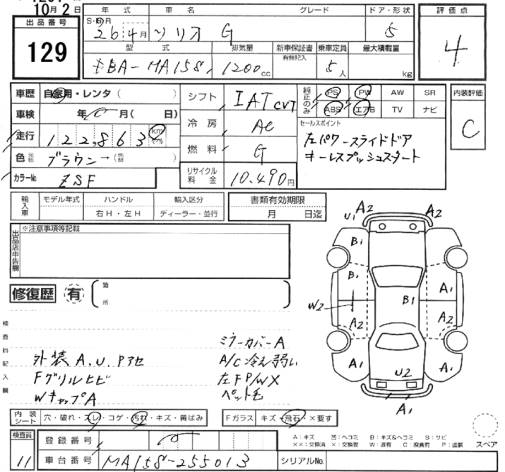 10月2日
出品番号
129
年式 車名 グレード ドア・形状 評価点
26年4月 ソリオ G 5 4
型式 排気量 新車保証書 乗車定員 最大積載量
有無記入
DBA-MA15S 1200cc 5人 kg
車歴 自家用・レンタ( )
車検 年 月( 日)
走行 122,863 km
色 ブラウン→
カラーNo. ZSF
シフト IAT CVT
冷房 AC
燃料 G
リサイクル料金 10,490円
純正のみ PS PW AW SR
ABS エアB TV ナビ
内装評価
C
セールスポイント
左パワースライドドア
キーレスプッシュスタート
輸入車 モデル年式 ハンドル 輸入区分
右H・左H ディーラー・並行
書類有効期限
月 日迄
出品店申告欄 ※注意事項等記載
修復歴 有 箇所
検査員記入欄
外装A.U.Pアセ
Fグリルヒビ
WキャップA
ミラーカバーA
A/C冷え弱い
左FP/WX
ペット毛
U1 A2 A2
B1 A1
W2 B1 B1 A2
A2 A2
A1 U2 A1
A1
内装シート 穴・破れ・スレ・コゲ・汚れ・キズ・歯ばみ
Fガラス キズ・飛石・×要す
A:キズ U:ヘコミ B:キズ&ヘコミ S:サビ
スペア
検査員 11
登録番号
車台番号 MA15S-255013
シリアルNo.